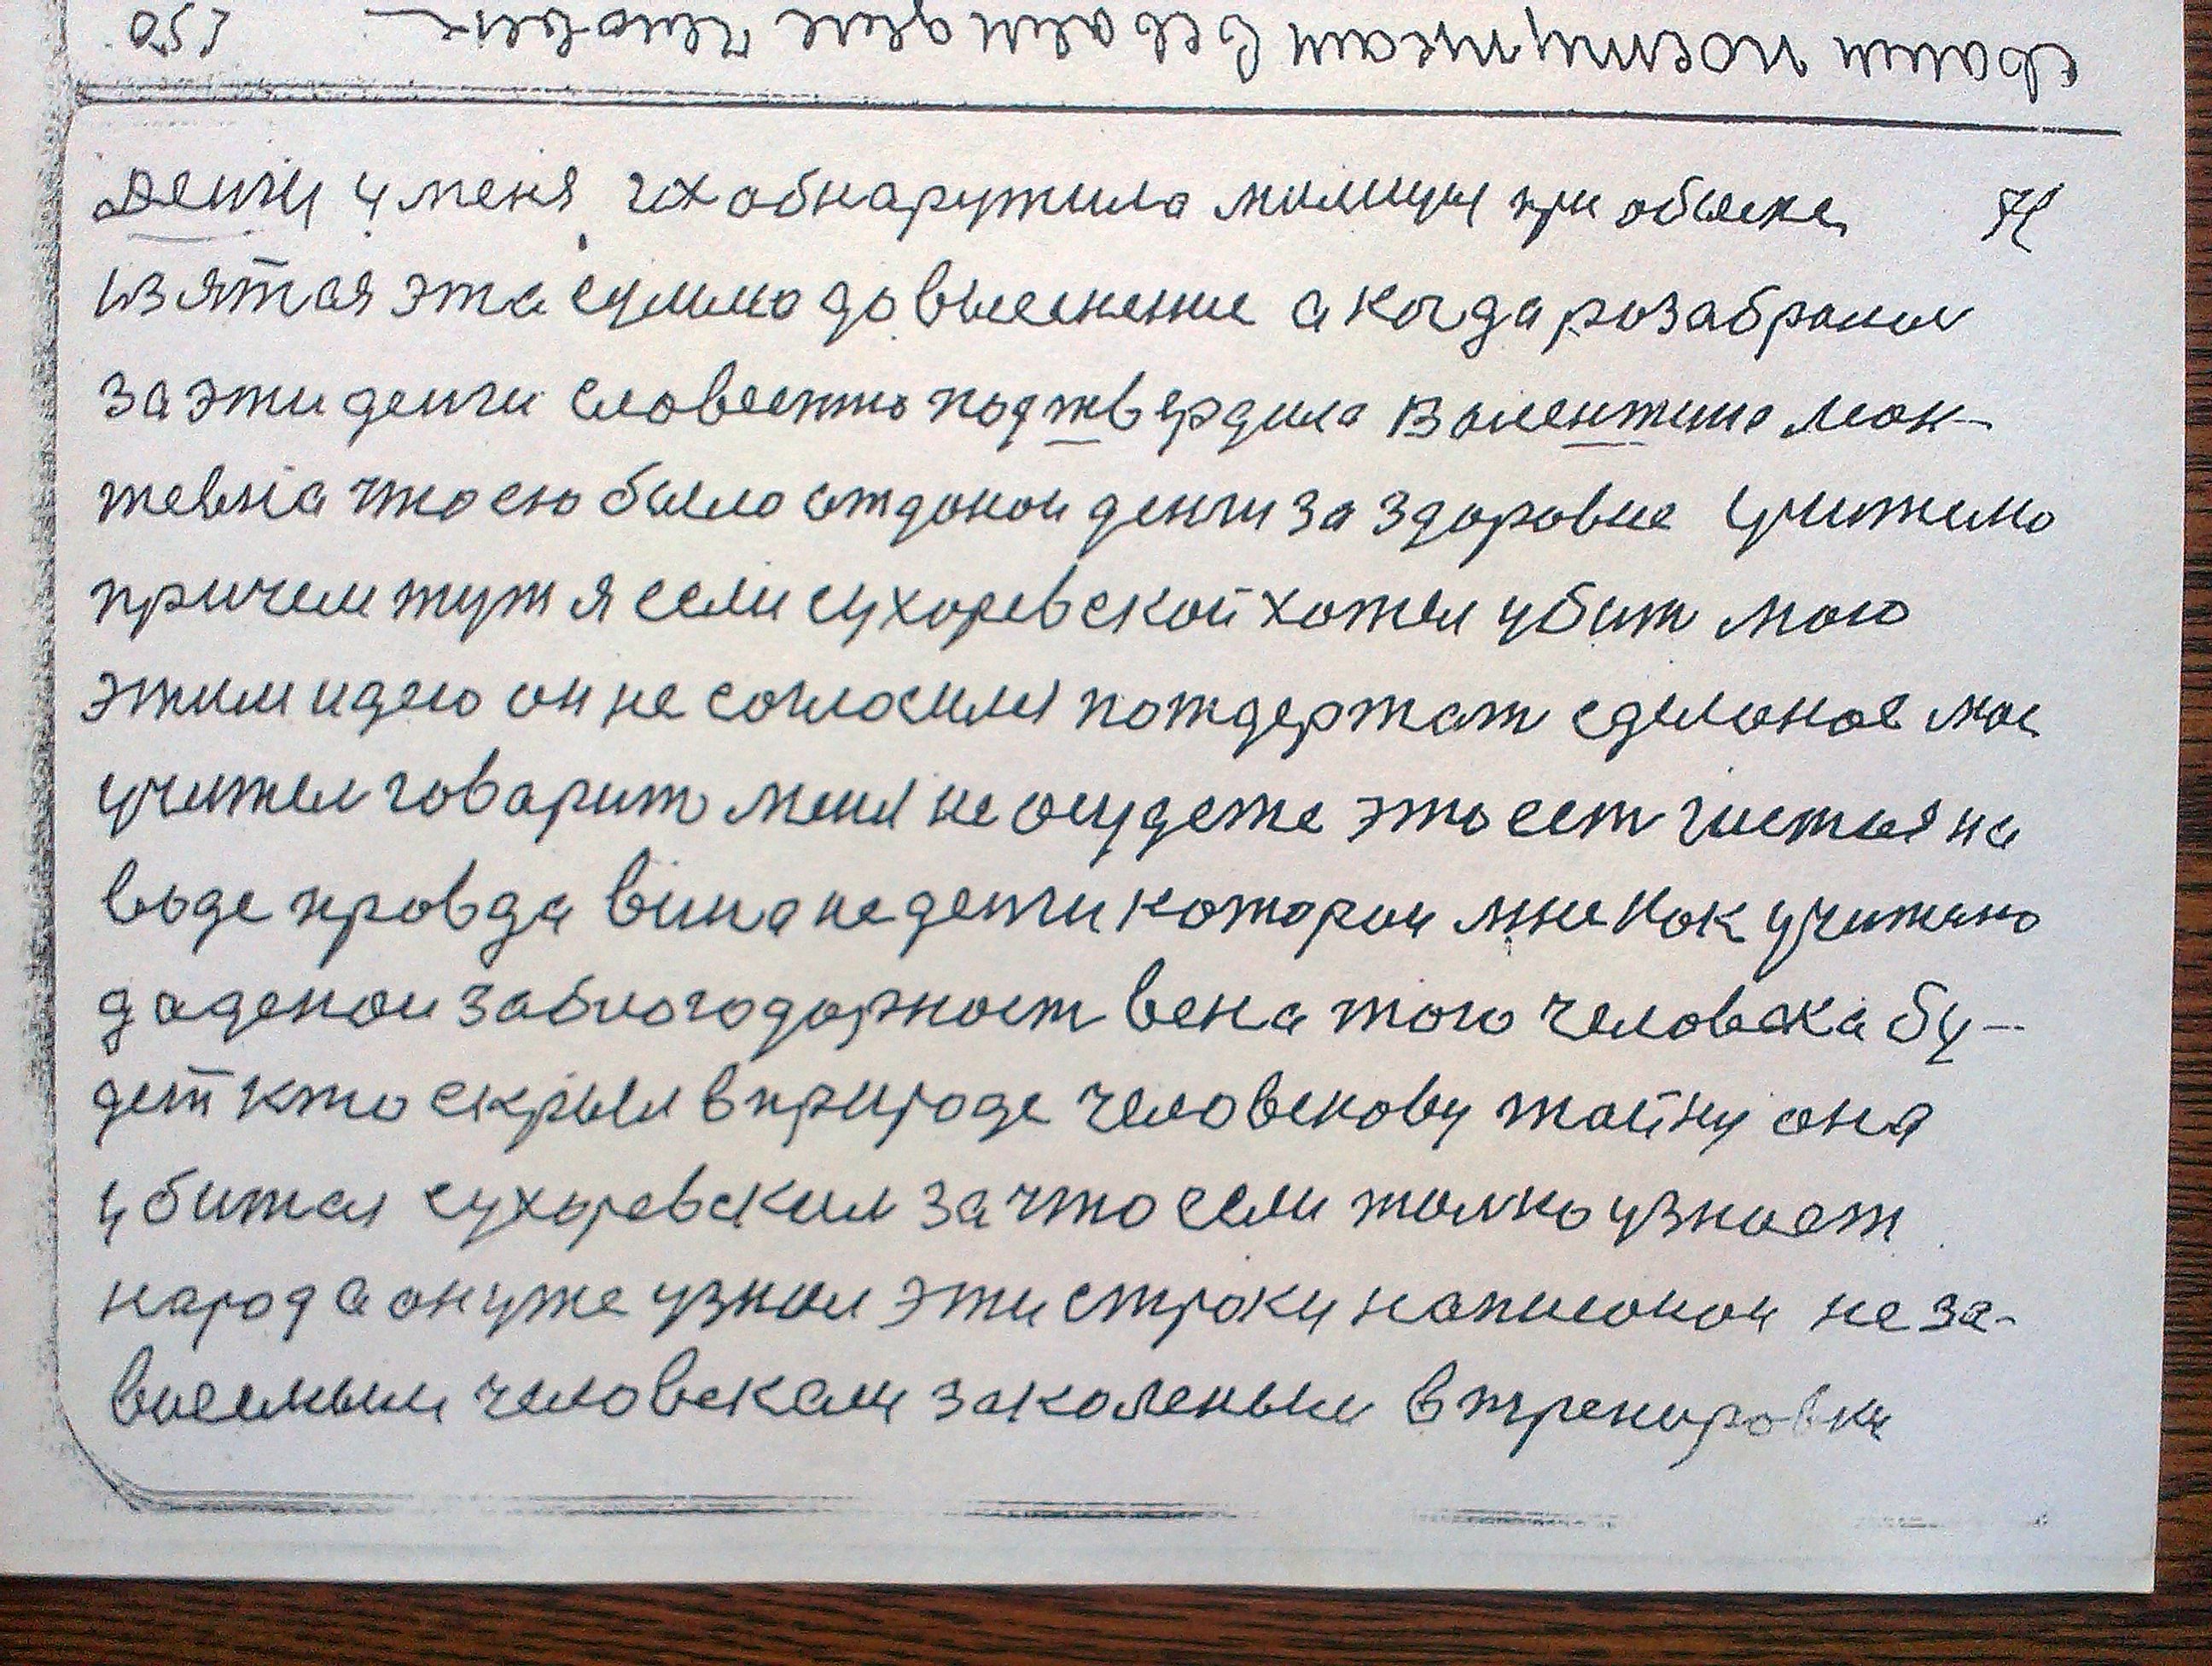 денги у меня их обнаружила милицыя при обыске
изятая эта сумма до выеснение а когда розабралис
за эти денги словестно подтвердила Валентина Леон-
тевна что ею было отданои денги за здоровие Учителю
причем тут я если сухоревской хотел убит мою
этим идею он не согласился потдержат сделаное мое
учител говарит меня не осудете это ест чистая на
воде правда вина не денги которои мне как учителю
даденои заблогодарност вена того человека бу-
дет кто скрыл в природе человекову тайну она
убитая сухоревским за что если толко узнает
народ а он уже узнал эти строки написонои не за-
висемым человекам заколеным в тренировки